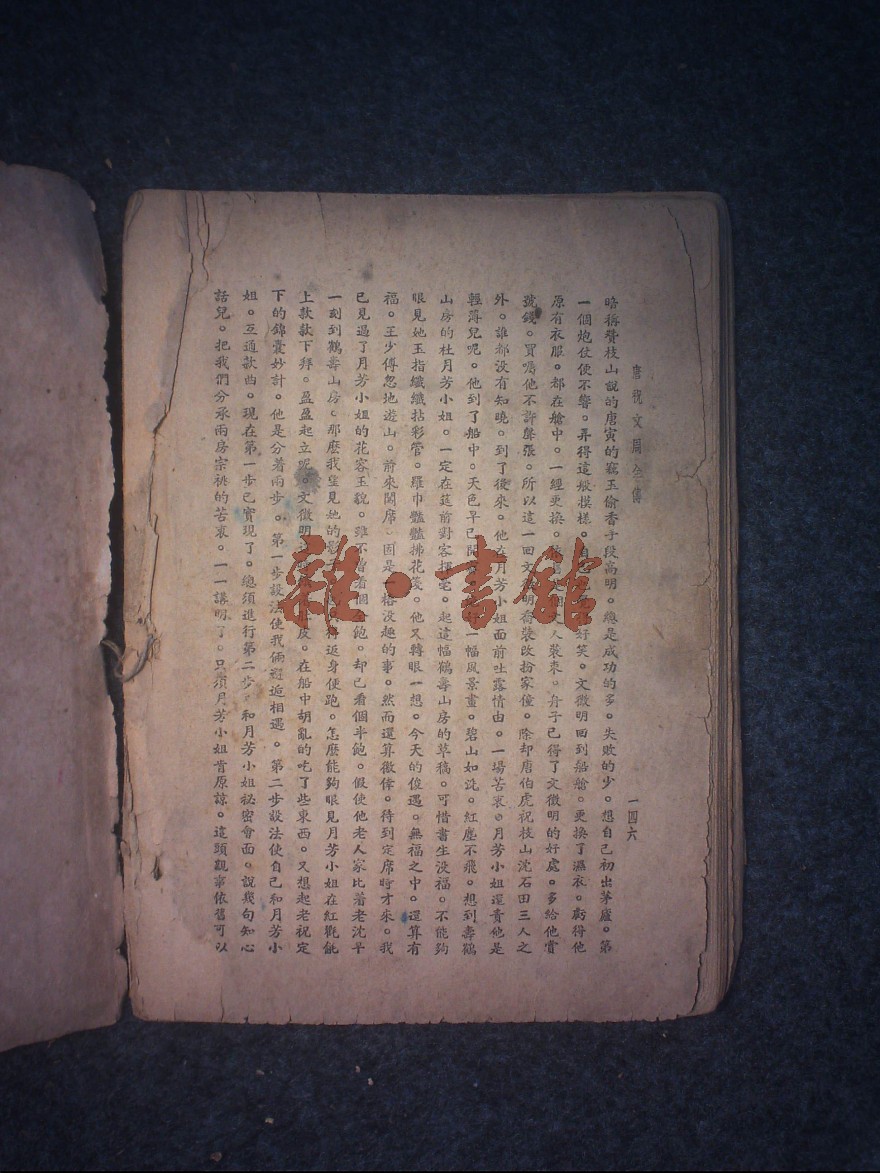 唐祝文周全傳
一四六
暗稱贊枝山說的唐寅的竊玉偷香手段高明。總是成功的多。失敗的少。想自己初出茅廬。第
一個炮仗便不響。弄得這般模樣。自 好笑。文徵明回到船艙。更換了濕衣。虧得他
原有衣服。都在艙中。一經更換。 人裝束。舟子已得了文徵明的好處。多給他賞
號錢。買囑他不許聲張。所以這一回文 明喬裝改扮家僮。除却唐伯虎祝枝山沈石田三人之
外。誰都没有知曉。到了後來。他在月芳小姐面前吐露情由。一場苦衷。月芳小姐還責他是
輕薄兒呢。他到了船中。天色早已開 一幅風景畫。碧山如洗。紅塵不飛。想到壽鶴
山房的杜月芳小姐。一定在筵前對客揮毫。起這幅鶴壽山房的草稿。可惜書生没福。不能夠
眼見她玉指纖纖拈彩管。羅巾豔豔拂花箋。他又轉眼一想。今天的俊遇。無福之中。還算有
福。王少傅忽地遊山。前來鬧席。固是一樁没趣的事。然而還算徼倖。待到定席時才來。我
已見過了月芳小姐的花容玉貌。雖不曾看個 飽。却已看個半飽。假使他老人家比着老沈早
一刻到鶴壽山房。那麼我望見她的影 得返身便跑。怎麼能夠眼見月芳小姐在紅氍毹
上款款下拜。盈盈起立呢。文徵明 皮。在船中胡亂的吃了些東西。又想起老祝定
下的錦囊妙計。他是分着兩步。第一步設法使我倆邂逅相遇。第二步設法使自己和月芳小
姐。互通款曲。現在第一步已實現了。總須進行第二步。和月芳小姐祕密會面。說幾句知心
話兒。把我們分承兩房宗祧的苦衷。一一講明了。只須月芳小姐肯原諒。這頭親事依舊可以
雜·書館